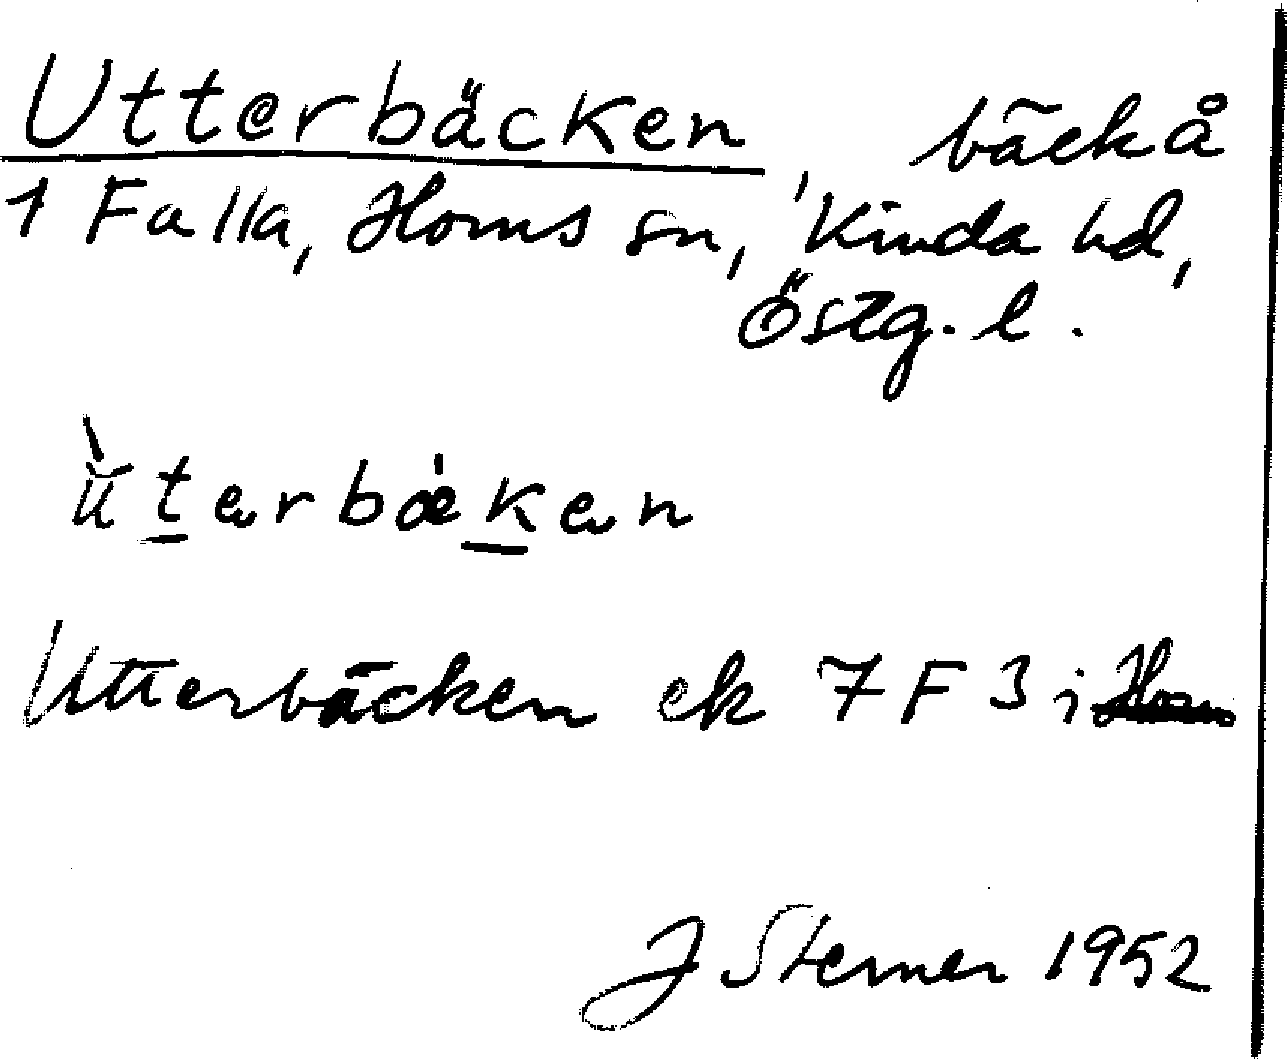 Utterbäcken, bäckå
1 Falla, Horns sn, Kinda hd,
Östg. l.
ùt̲ərbæ̀k̲ən
Utterbäcken ek 7 F 3 i Horn
J Sterner 1952